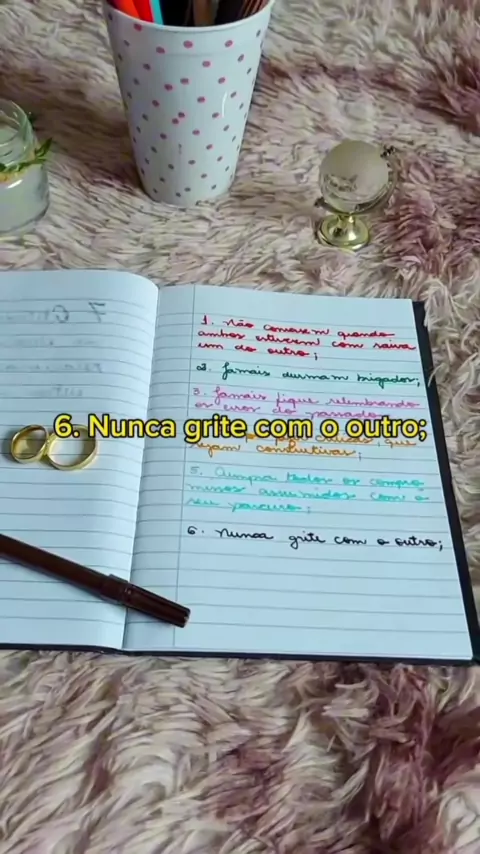 1. Não conversem quando
ambos estiverem com raiva
um do outro;
2. Jamais durmam brigados;
3. Jamais fique relembrando
os erros do passado
6. Nunca grite com o outro;
que
sejam construtivas;
5. Cumpra todos os compro
missos assumidos com o
seu parceiro;
6. Nunca grite com o outro;